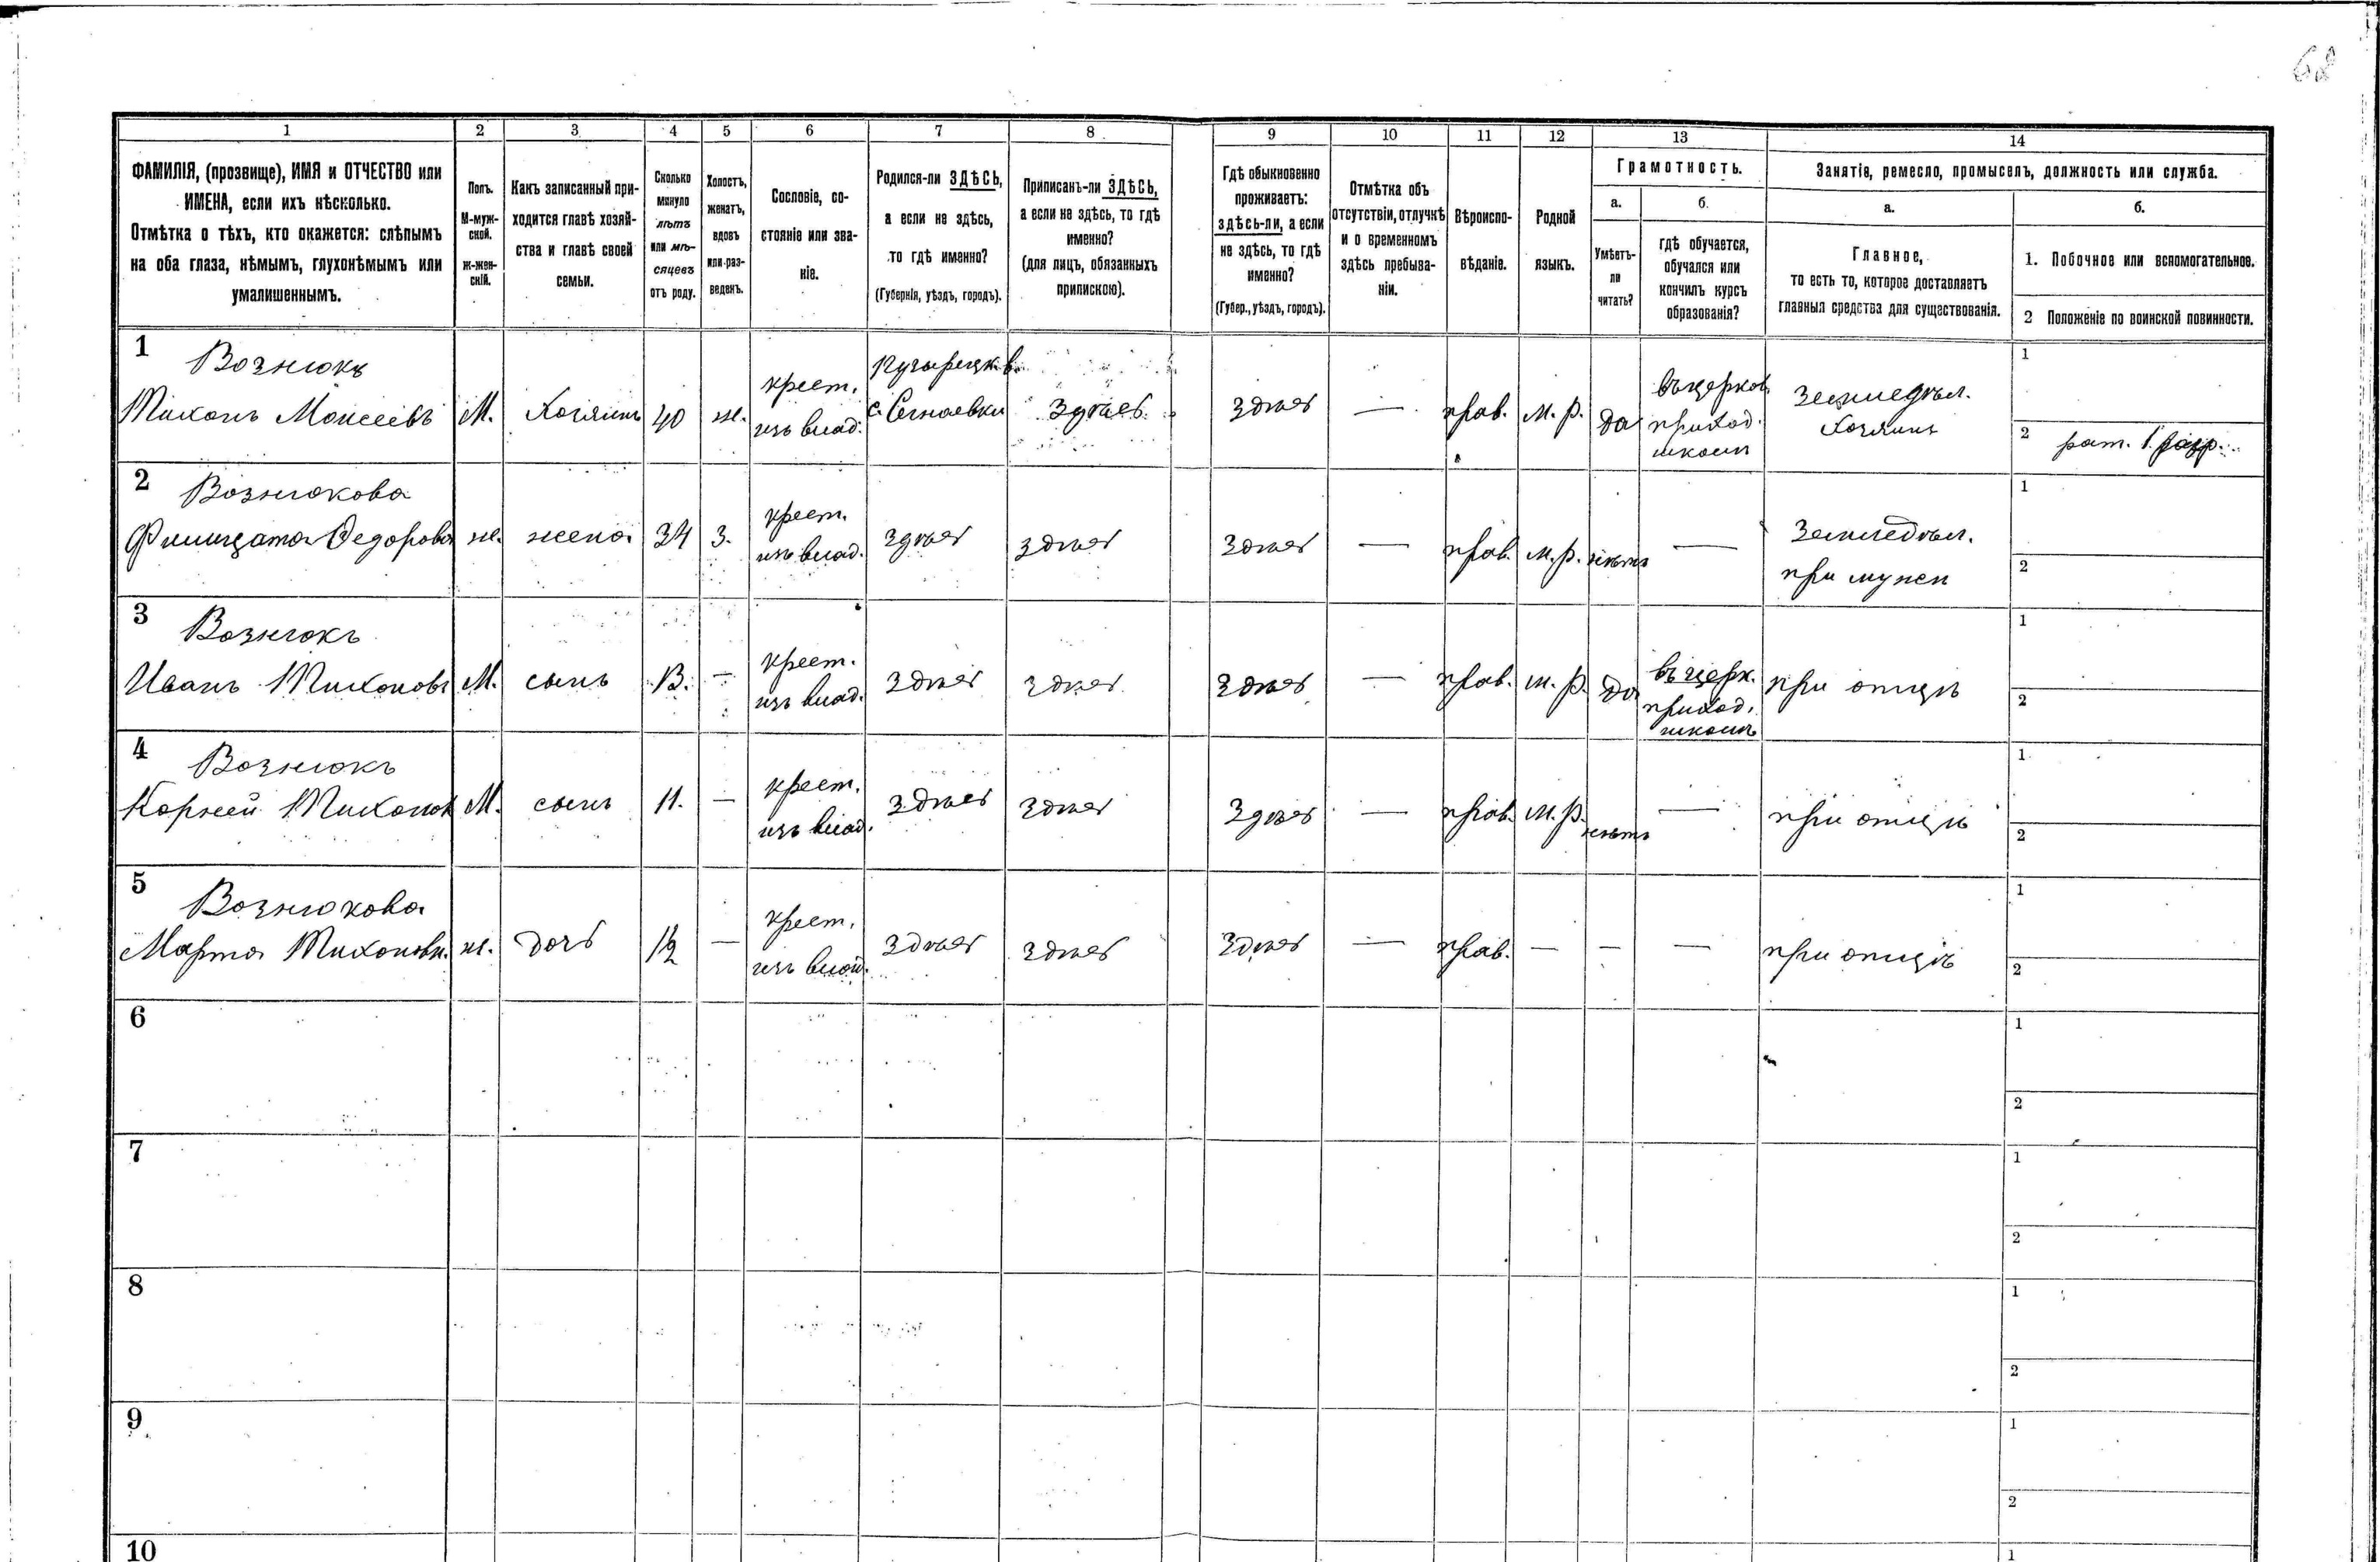 68
1 2 3 4 5 6 7 8 9 10 11 12 13 14
ФАМИЛІЯ, (прозвище), ИМЯ и ОТЧЕСТВО или
ИМЕНА, если ихъ нѣсколько.
Отмѣтка о тѣхъ, кто окажется: слѣпымъ
на оба глаза, нѣмымъ, глухонѣмымъ или
умалишеннымъ.
Полъ.
М-муж-
ской.
Ж-жен-
скій.
Какъ записанный при-
ходится главѣ хозяй-
ства и главѣ своей
семьи.
Сколько
минуло
лѣтъ
или мѣ-
сяцевъ
отъ роду.
Холостъ,
женатъ,
вдовъ
или раз-
веденъ.
Сословіе, со-
стояніе или зва-
ніе.
Родился-ли ЗДѢСЬ,
а если не здѣсь,
то гдѣ именно?
(Губернія, уѣздъ, городъ).
Приписанъ-ли ЗДѢСЬ,
а если не здѣсь, то гдѣ
именно?
(для лицъ, обязанныхъ
припискою).
Гдѣ обыкновенно
проживаетъ:
здѣсь-ли, а если
не здѣсь, то гдѣ
именно?
(Губер., уѣздъ, городъ).
Отмѣтка объ
отсутствіи, отлучкѣ
и о временномъ
здѣсь пребыва-
ніи.
Вѣроиспо-
вѣданіе.
Родной
языкъ.
Грамотность.
а.
Умѣетъ-
ли
читать?
б.
гдѣ обучается,
обучался или
кончилъ курсъ
образованія?
Занятіе, ремесло, промыселъ, должность или служба.
а.
Главное,
то есть то, которое доставляетъ
главныя средства для существованія.
б.
1. Побочное или вспомогательное.
2 Положеніе по воинской повинности.
1 Вознюкъ
Тихонъ Моисеевъ М. Хозяинъ 40 ж. крест.
изъ влад. с. Здѣсь Здѣсь — прав. м. р. да въ церков.
приход.
школѣ Земледѣл.
Хозяинъ 1
2 рат. 1 разр.
2 Вознюкова
Филицата Федорова ж. жена 34 з. крест.
изъ влад. здѣсь здѣсь здѣсь — прав. м. р. нѣтъ — Земледѣл.
при мужѣ 1
2
3 Вознюкъ
Иванъ Тихоновъ М. сынъ 13. — крест.
изъ влад. здѣсь здѣсь здѣсь — прав. м. р. да въ церк.
приход.
школѣ при отцѣ 1
2
4 Вознюкъ
Корней Тихонов М. сынъ 11. — крест.
изъ влад. здѣсь здѣсь здѣсь — прав. м. р. нѣтъ — при отцѣ 1
2
5 Вознюкова
Марта Тихоновн. ж. дочь — крест.
изъ влад. здѣсь здѣсь здѣсь — прав. — — — при отцѣ 1
2
6 1
2
7 1
2
8 1
2
9 1
2
10 1